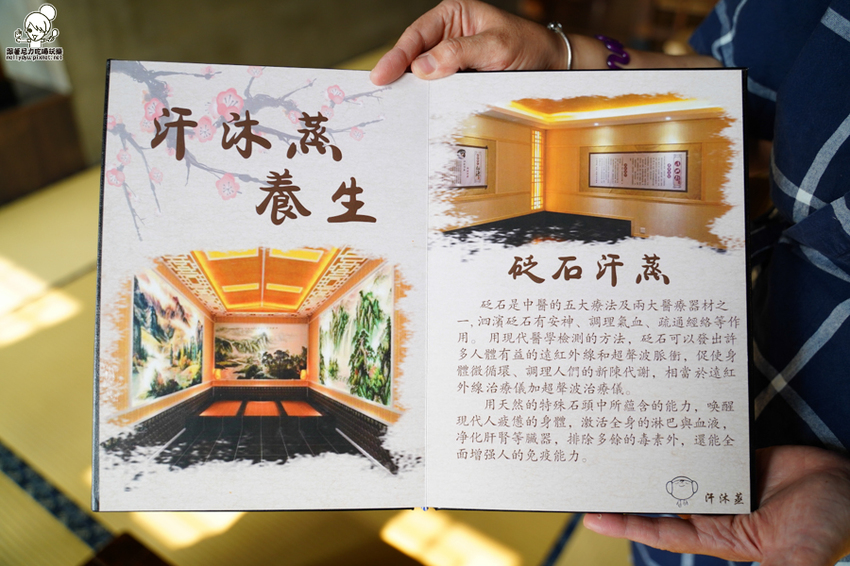 跟著尼力吃喝玩樂
nellydyu.pixnet.net
汗沐蒸
養生
砭石汗蒸
砭石是中醫的五大療法及兩大醫療器材之
一,泗濱砭石有安神、調理氣血、疏通經絡等作
用。 用現代醫學檢測的方法,砭石可以發出許
多人體有益的遠紅外線和超聲波脈衝,促使身
體微循環、調理人們的新陳代謝,相當於遠紅
外線治療儀加超聲波治療儀。
用天然的特殊石頭中所蘊含的能力,喚醒
現代人疲憊的身體,激活全身的淋巴與血液,
净化肝腎等臟器,排除多餘的毒素外,還能全
面增强人的免疫能力。
汗沐蒸